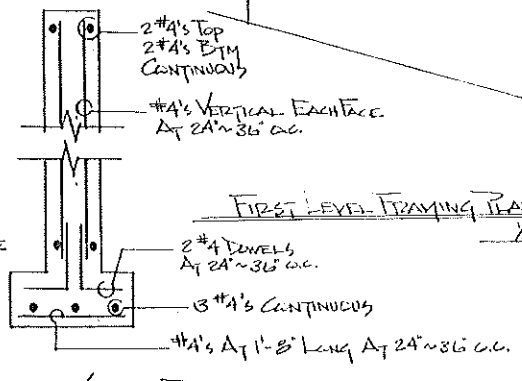 2 #4's Top
2 #4's BTM
CONTINUOUS
#4's VERTICAL EACH FACE
AT 24"~36" O.C.
FIRST LEVEL FRAMING PLA
2 #4 DOWELS
AT 24"~36" O.C.
3 #4's CONTINUOUS
#4's AT 1'-8" LONG AT 24"~36" O.C.